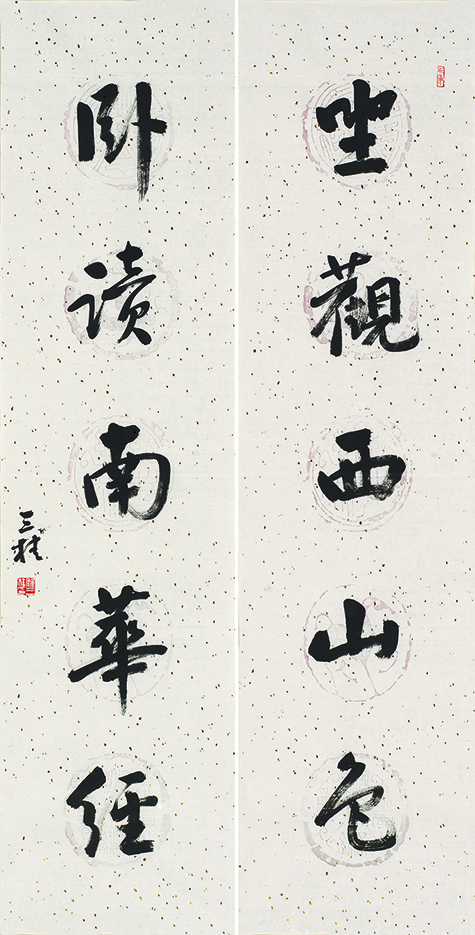 坐觀西山色
卧读南華經
三枝